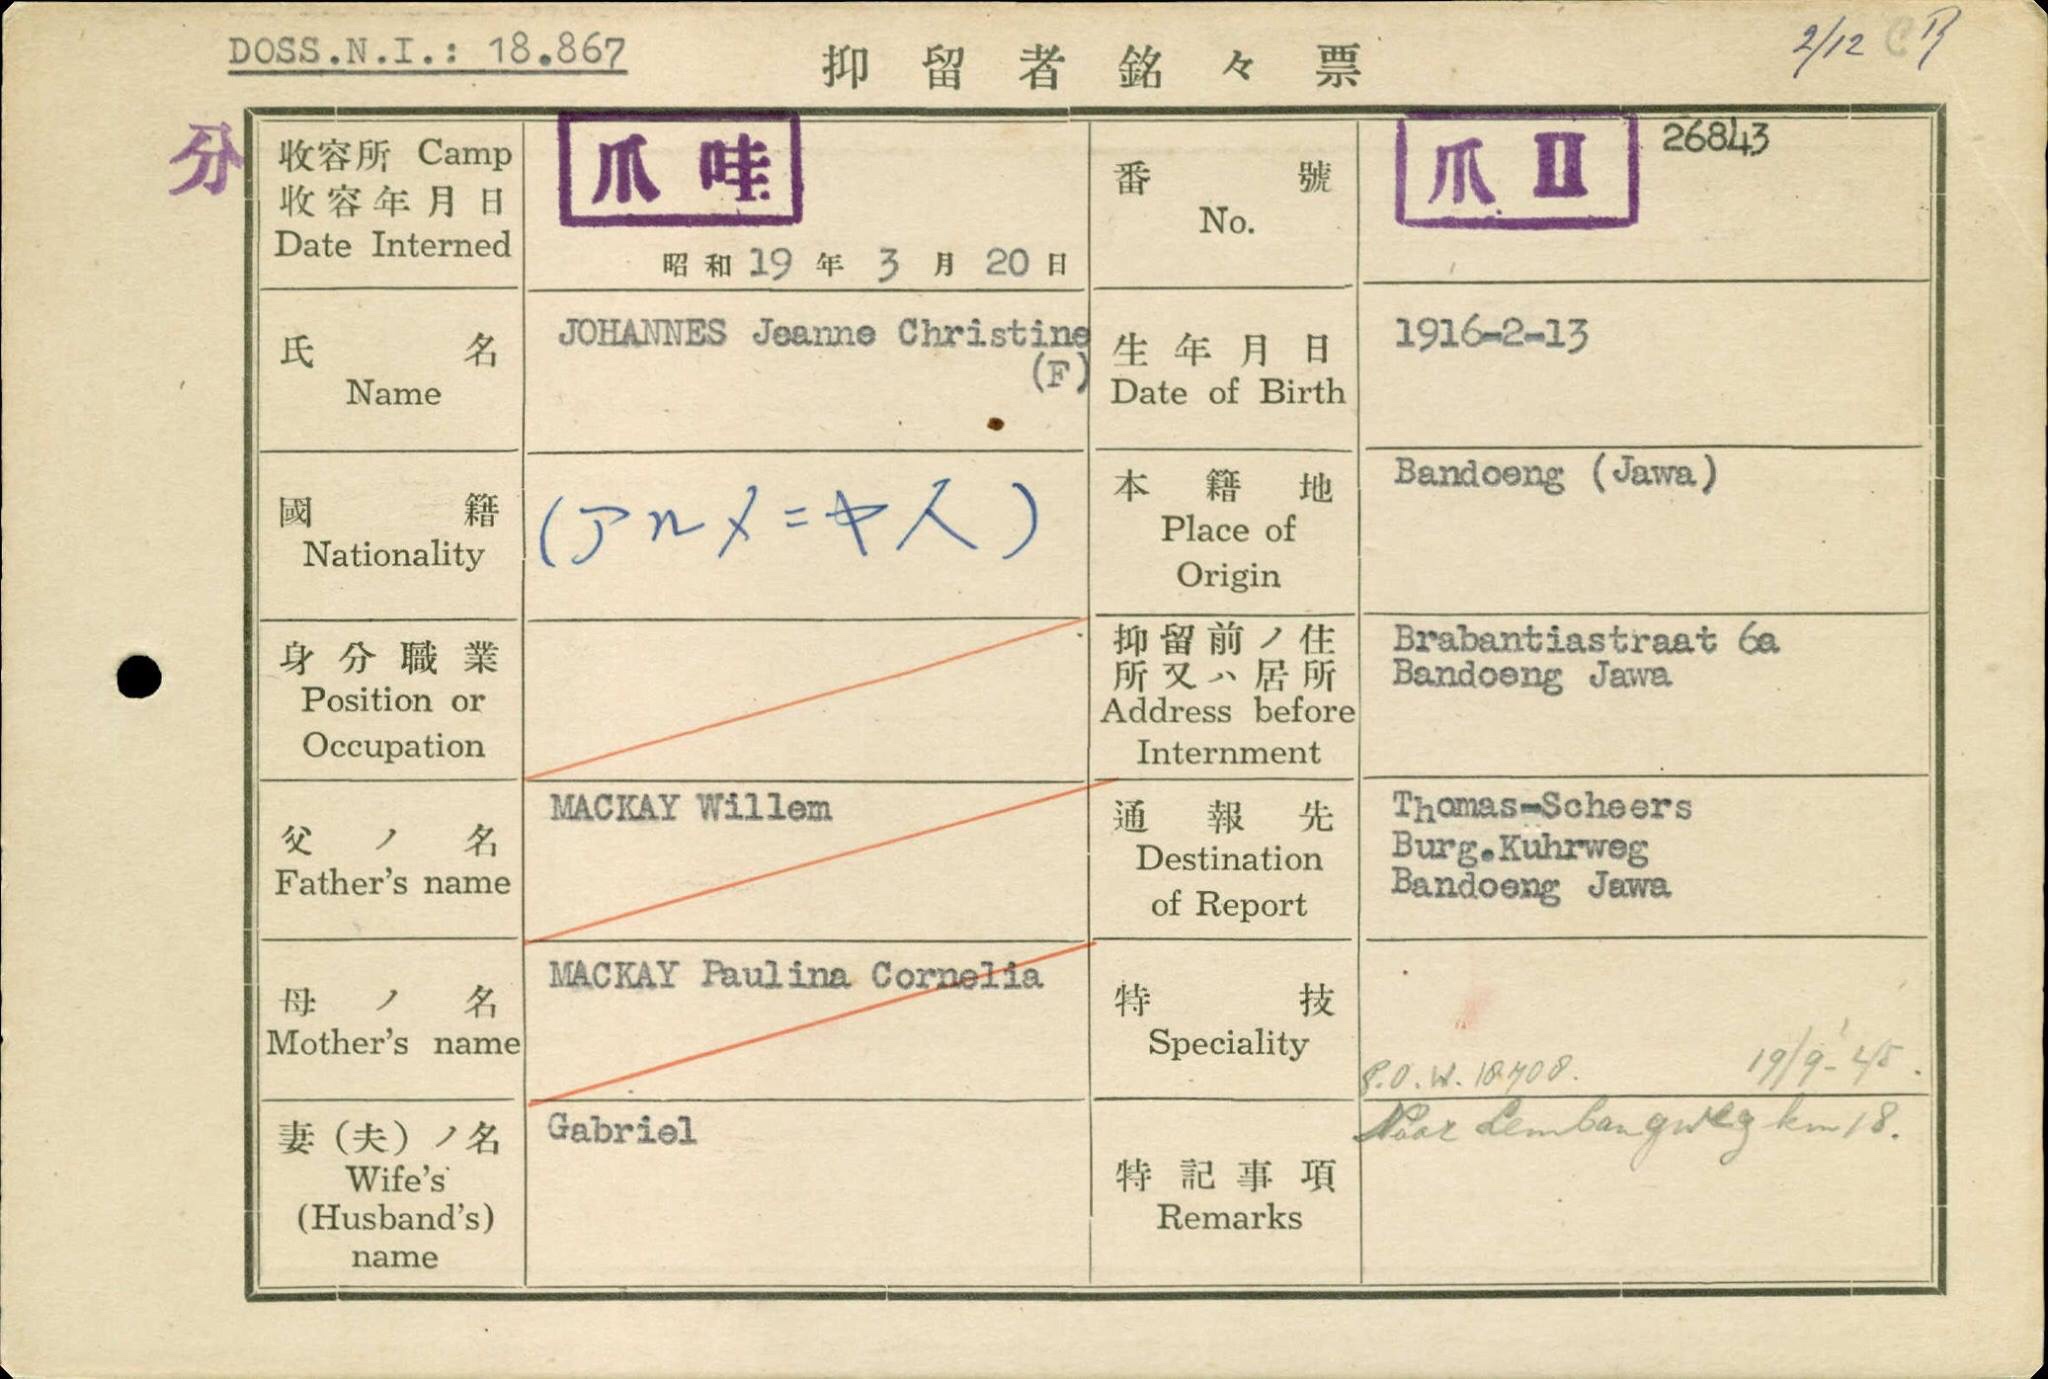 DOSS.N.I.: 18.867
抑留者銘々票
2/12
分
收容所 Camp
收容年月日
Date Interned
爪哇
昭和19年3月20日
番號
No.
爪 II
26843
氏名
Name
JOHANNES Jeanne Christine
(F)
生年月日
Date of Birth
1916-2-13
國籍
Nationality
(アルメニヤ人)
本籍地
Place of
Origin
Bandoeng (Jawa)
身分職業
Position or
Occupation
抑留前ノ住
所又ハ居所
Address before
Internment
Brabantiastraat 6a
Bandoeng Jawa
父ノ名
Father's name
MACKAY Willem
通報先
Destination
of Report
Thomas-Scheers
Burg.Kuhrweg
Bandoeng Jawa
母ノ名
Mother's name
MACKAY Paulina Cornelia
特技
Speciality
P.O.W. 18708. 19/9-'45.
妻(夫)ノ名
Wife's
(Husband's)
name
Gabriel
特記事項
Remarks
Naar Lembangweg km 18.